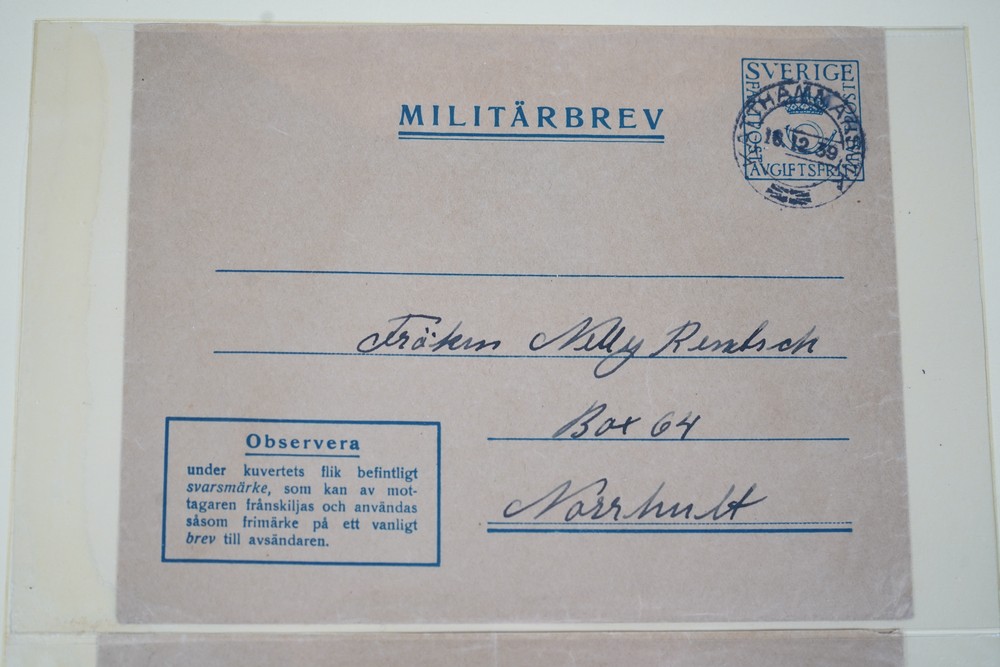 MILITÄRBREV
SVERIGE
AVGIFTSFRI
16.12.39
Fröken Nelly Rembsch
Box 64
Norrhult
Observera
under kuvertets flik befintligt
svarsmärke, som kan av mot-
tagaren frånskiljas och användas
såsom frimärke på ett vanligt
brev till avsändaren.